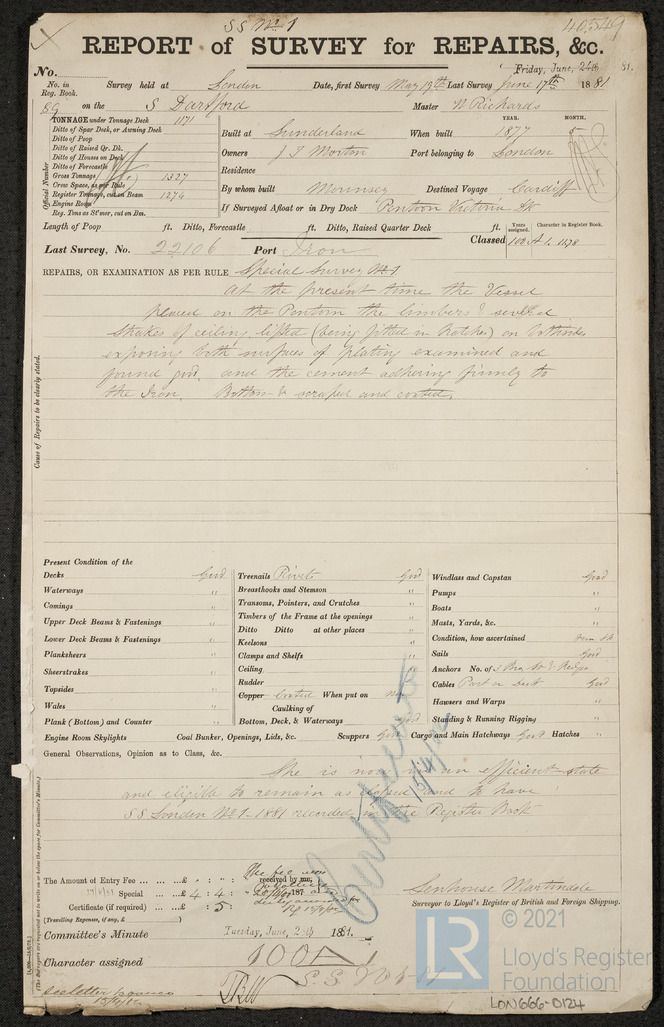 SS No 1
40549
REPORT of SURVEY for REPAIRS, &c.
Friday, June, 24th 81.
No.
No. in Reg. Book. Survey held at London Date, first Survey May 19th Last Survey June 17th 1881
89 on the S Dartford Master W Richards
TONNAGE under Tonnage Deck 1171
Ditto of Spar Deck, or Awning Deck
Ditto of Poop
Ditto of Raised Qr. Dk.
Ditto of Houses on Deck
Ditto of Forecastle
Gross Tonnage 1327
Crew Space, as per Rule
Register Tonnage, cut on Beam 1274
Engine Room
Reg. Tons as St'mer, cut on Bm.
Official Number
YEAR. MONTH.
Built at Sunderland When built 1877 5
Owners J S Morton Port belonging to London
Residence
By whom built Mounsey Destined Voyage Cardiff
If Surveyed Afloat or in Dry Dock Pontoon Victoria Dk
Length of Poop ft. Ditto, Forecastle ft. Ditto, Raised Quarter Deck ft.
Years assigned. Character in Register Book.
Last Survey, No. 22106 Port Iron Classed 100 A 1. 11.78
REPAIRS, OR EXAMINATION AS PER RULE Special Survey No 1
At the present time the Vessel
placed on the Pontoon the limbers & several
strakes of ceiling lifted (being fitted in Hatches) on both sides
exposing both surfaces of plating examined and
found good. and the cement adhering firmly to
the Iron. Bottom scraped and coated.
Cause of Repairs to be clearly stated.
Present Condition of the
Decks Good
Waterways "
Comings "
Upper Deck Beams & Fastenings "
Lower Deck Beams & Fastenings "
Planksheers "
Sheerstrakes "
Topsides "
Wales "
Plank (Bottom) and Counter "
Treenails Rivets Good
Breasthooks and Stemson "
Transoms, Pointers, and Crutches "
Timbers of the Frame at the openings "
Ditto Ditto at other places "
Keelsons "
Clamps and Shelfs "
Ceiling "
Rudder "
Copper Coated When put on
Caulking of
Bottom, Deck, & Waterways Good
Windlass and Capstan Good
Pumps "
Boats "
Masts, Yards, &c. "
Condition, how ascertained
Sails Good
Anchors No. of 3
Cables Part on deck Good
Hawsers and Warps "
Standing & Running Rigging "
Engine Room Skylights Coal Bunker, Openings, Lids, &c. Scuppers Good Cargo and Main Hatchways Good Hatches "
General Observations, Opinion as to Class, &c.
She is now in an efficient state
and eligible to remain as classed and to have
SS London No 1-1881 recorded in the Register Book
The Amount of Entry Fee ... ...£ : : received by me,
Special ... ...£ 4 : 4 : 187
Certificate (if required) ... ...£ : 5 :
(Travelling Expenses, if any, £ )
The fee was
Senhouse Martindale
Surveyor to Lloyd's Register of British and Foreign Shipping.
Committee's Minute Tuesday, June, 28th 1881.
Character assigned 100A1
S.S No 1-81
© 2021
LR
Lloyd's Register
Foundation
LON666-0124